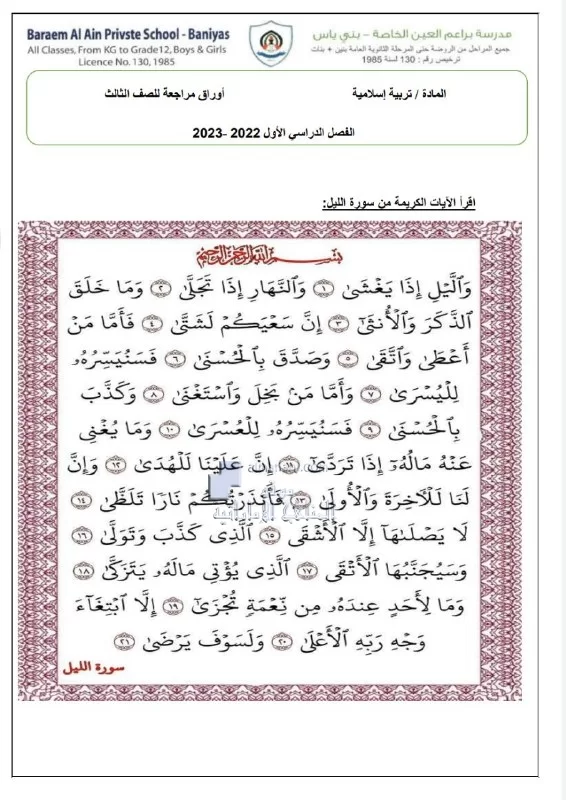 Baraem Al Ain Privste School - Baniyas
All Classes, From KG to Grade12, Boys & Girls
Licence No. 130, 1985
مدرسة براعم العين الخاصة - بني ياس
جميع المراحل من الروضة حتى المرحلة الثانوية العامة بنين + بنات
ترخيص رقم : 130 لسنة 1985
المادة / تربية إسلامية
أوراق مراجعة للصف الثالث
الفصل الدراسي الأول 2022 -2023
اقرأ الآيات الكريمة من سورة الليل:
بِسْمِ اللَّهِ الرَّحْمَٰنِ الرَّحِيمِ
وَٱلَّيْلِ إِذَا يَغْشَىٰ ١ وَٱلنَّهَارِ إِذَا تَجَلَّىٰ ٢ وَمَا خَلَقَ
ٱلذَّكَرَ وَٱلْأُنثَىٰٓ ٣ إِنَّ سَعْيَكُمْ لَشَتَّىٰ ٤ فَأَمَّا مَنْ
أَعْطَىٰ وَٱتَّقَىٰ ٥ وَصَدَّقَ بِٱلْحُسْنَىٰ ٦ فَسَنُيَسِّرُهُۥ
لِلْيُسْرَىٰ ٧ وَأَمَّا مَنۢ بَخِلَ وَٱسْتَغْنَىٰ ٨ وَكَذَّبَ
بِٱلْحُسْنَىٰ ٩ فَسَنُيَسِّرُهُۥ لِلْعُسْرَىٰ ١٠ وَمَا يُغْنِى
عَنْهُ مَالُهُۥٓ إِذَا تَرَدَّىٰٓ ١١ إِنَّ عَلَيْنَا لَلْهُدَىٰ ١٢ وَإِنَّ
لَنَا لَلْءَاخِرَةَ وَٱلْأُولَىٰ ١٣ فَأَنذَرْتُكُمْ نَارًا تَلَظَّىٰ ١٤
لَا يَصْلَىٰهَآ إِلَّا ٱلْأَشْقَى ١٥ ٱلَّذِى كَذَّبَ وَتَوَلَّىٰ ١٦
وَسَيُجَنَّبُهَا ٱلْأَتْقَى ١٧ ٱلَّذِى يُؤْتِى مَالَهُۥ يَتَزَكَّىٰ ١٨
وَمَا لِأَحَدٍ عِندَهُۥ مِن نِّعْمَةٍ تُجْزَىٰٓ ١٩ إِلَّا ٱبْتِغَآءَ
وَجْهِ رَبِّهِ ٱلْأَعْلَىٰ ٢٠ وَلَسَوْفَ يَرْضَىٰ ٢١
سورة الليل